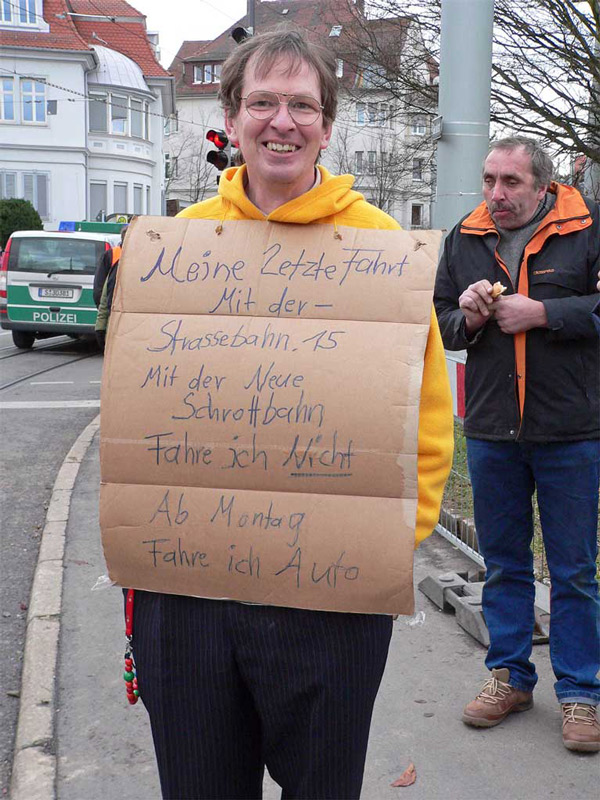 Meine Letzte Fahrt
Mit der -
Strassebahn. 15
Mit der Neue
Schrottbahn
Fahre ich Nicht
Ab Montag
Fahre ich Auto
POLIZEI